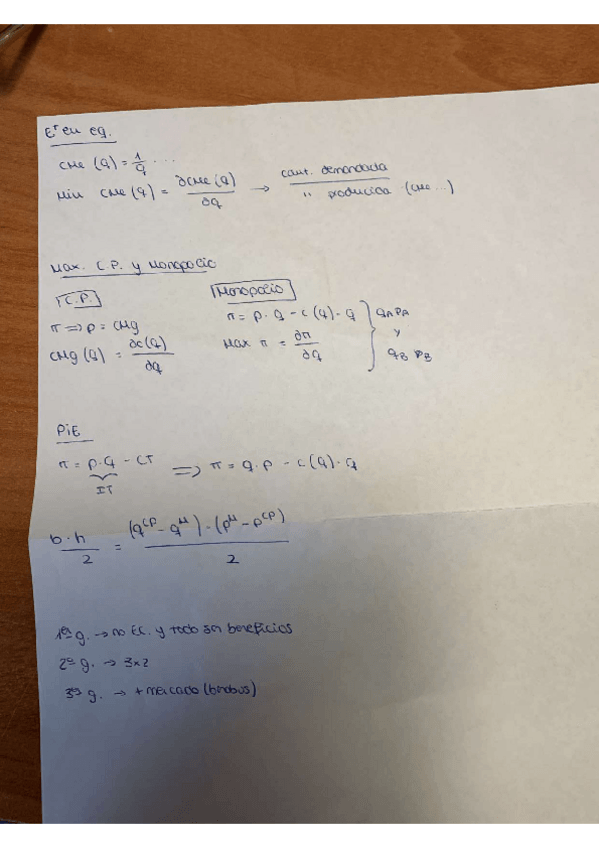 Eʳ en eq.
CMe (q) = 1/q ...
Min CMe (q) = ∂CMe(q)/∂q → cant. demandada / " producida (CMe...)
Max. C.P. y Monopolio
C.P.
Monopolio
π ⇒ p = CMg
π = p · q - c(q) · q
CMg (q) = ∂c(q)/∂q
Max π = ∂π/∂q
qA pA
y
qB pB
PiE
π = p·q - CT ⇒ π = q·p - c(q)·q
IT
b·h/2 = (qᶜᴾ - qᴹ)·(pᴹ - pᶜᴾ)/2
1º g. → no EC. y todo son beneficios
2º g. → 3x2
3º g. → + mercado